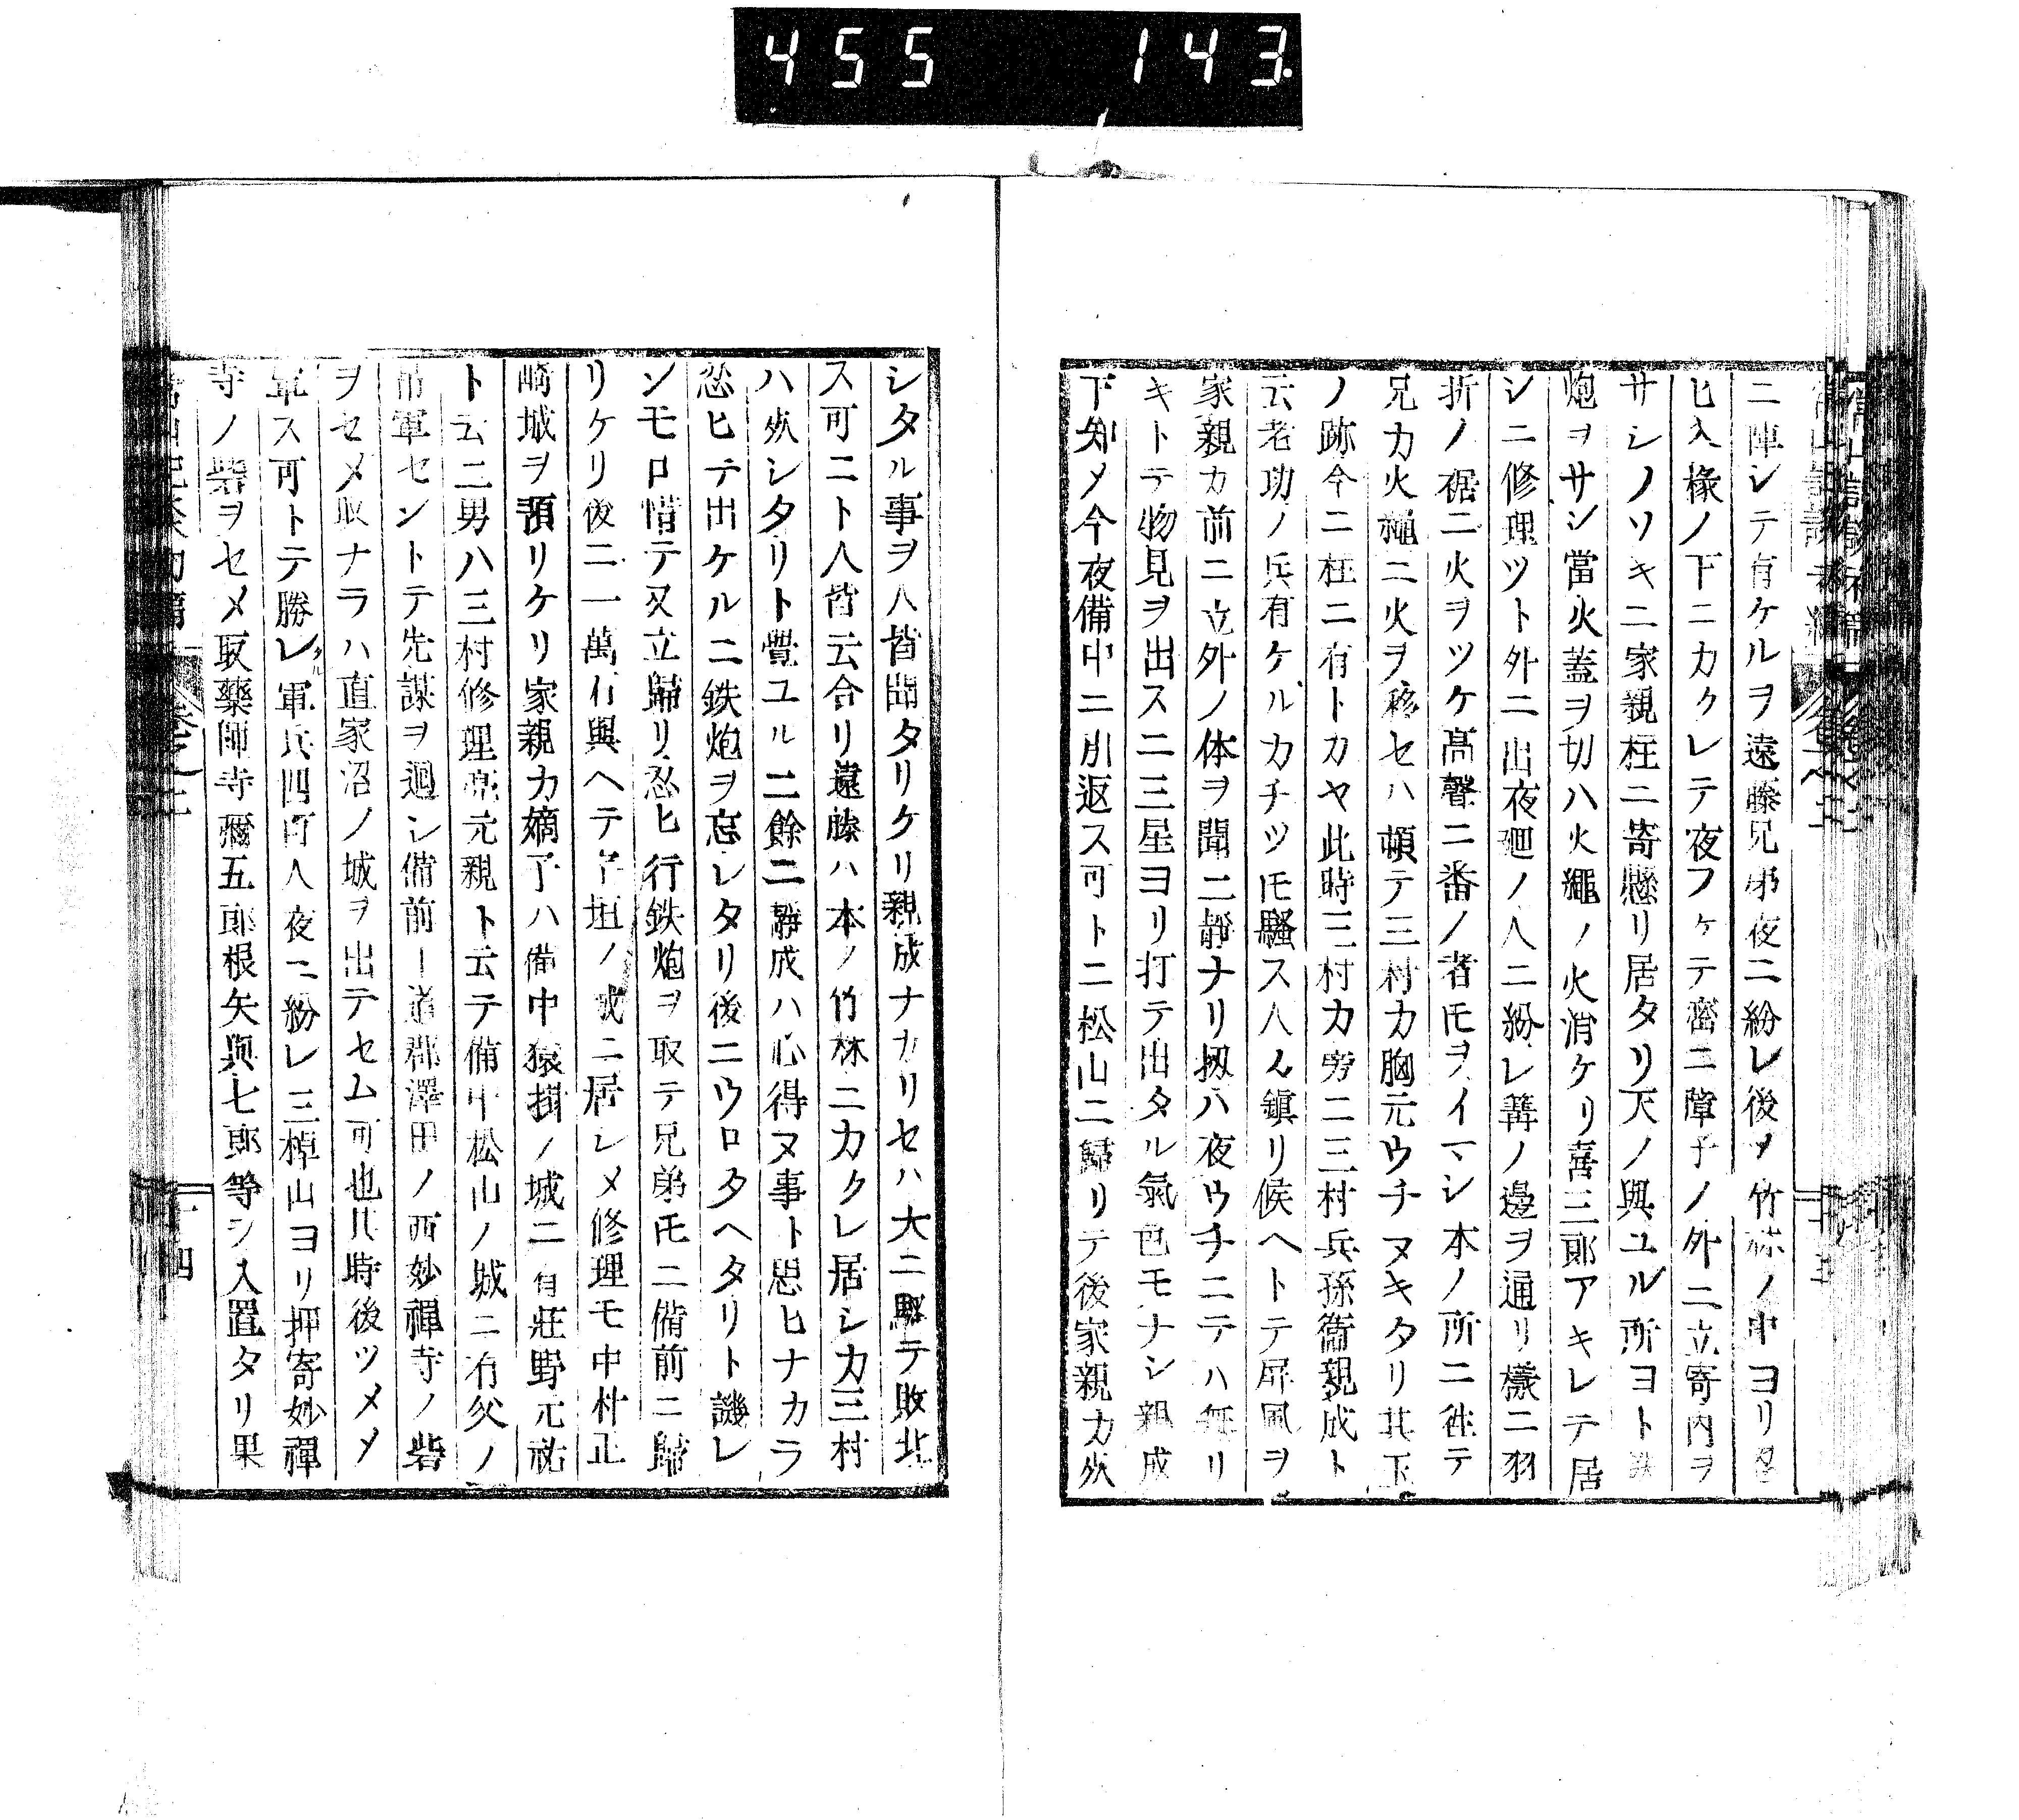 455 143
ニ陣シテ有ケルヲ遠藤兄弟夜ニ紛レ後ヲ竹林ノ中ヨリ忍
ヒ入椽ノ下ニカクレテ夜フケテ密ニ障子ノ外ニ立寄内ヲ
サシノソキニ家親柱ニ寄懸リ居タリ天ノ與ユル所ヨト鉄
炮ヲサシ當火蓋ヲ切ハ火繩ノ火消ケリ喜三郎アキレテ居
シニ修理ツト外ニ出夜廻ノ人ニ紛レ篝ノ邊ヲ通リ様ニ羽
折ノ裾ニ火ヲツケ高聲ニ番ノ者𪜈ヲイマシ本ノ所ニ徃テ
兄カ火繩ニ火ヲ移セハ頓テ三村カ胸元ウチヌキタリ其玉
ノ跡今ニ柱ニ有トカヤ此時三村カ旁ニ三村兵孫衛親成ト
云老功ノ兵有ケルカチツ𪜈騒ス人々鎮リ候ヘトテ屏風ヲ
家親カ前ニ立外ノ体ヲ聞ニ静ナリ扨ハ夜ウチニテハ無リ
キトテ物見ヲ出スニ三星ヨリ打テ出タル氣色モナシ親成
下知メ今夜備中ニ引返ス可トニ松山ニ歸リテ後家親カ死
シタル事ヲ人皆聞タリケリ親成ナカリセハ大ニ騒テ敗北
ス可ニト人皆云合リ遠藤ハ本ノ竹林ニカクレ居シカ三村
ハ死シタリト覺ユルニ餘ニ静成ハ心得ヌ事ト思ヒナカラ
忍ヒテ出ケルニ鉄炮ヲ忘レタリ後ニウロタヘタリト譏レ
ンモ口惜テ又立歸リ忍ヒ行鉄炮ヲ取テ兄弟𪜈ニ備前ニ歸
リケリ後ニ一萬石與ヘテ
ノ城ニ居レメ修理モ中村正
崎城ヲ預リケリ家親カ嫡子ハ備中猿掛ノ城ニ有荘野元祐
ト云二男ハ三村修理亮元親ト云テ備中松山ノ城ニ有父ノ
吊軍セントテ先謀ヲ廻シ備前上道郡澤田ノ西妙禪寺ノ砦
ヲセメ取ナラハ直家沼ノ城ヲ出テセム可也其時後ツメメ
軍ス可トテ勝レタル軍兵四百人夜ニ紛レ三棹山ヨリ押寄妙禪
寺ノ砦ヲセメ取藥師寺彌五郎根矢與七郎等ヲ入置タリ果
十四